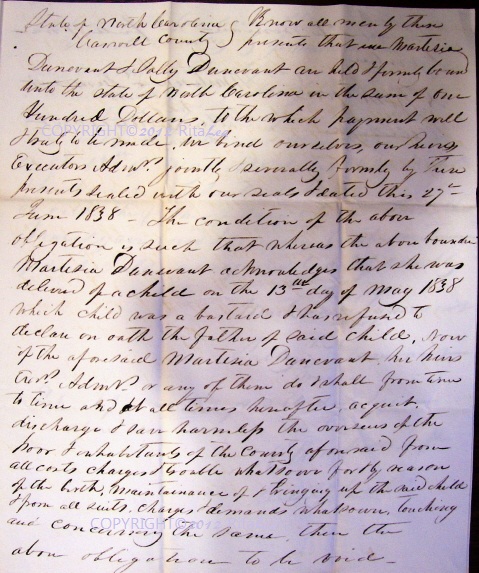 State of North Carolina } Know all men by these
Carroll County } presents that we Martisia
Dunevant & Sally Dunevant are held & firmly bound
unto the state of North Carolina in the sum of one
Hundred Dollars, to the which payment well
COPYRIGHT©2012 RitaLeg
& truly to be made. We bind ourselves, our heirs
Executors Admrs. jointly & severally firmly by these
presents sealed with our seals & dated this 27th
June 1838 - The condition of the above
obligation is such that whereas the above bounden
Martisia Danevant acknowledges that she was
delivered of a child on the 13th day of May 1838
which child was a bastard & has refused to
declare on oath the father of said child. Now
if the aforesaid Martisia Danevant her heirs
Exrs. Admrs. or any of them do & shall from time
to time and at all times hereafter, acquit.
discharge & save harmless the overseers of the
poor & inhabitants of the County aforesaid from
all costs charges & trouble whatsoever for & by reason
of the birth, maintainance of & bringing up the said child
& from all suits, charges & demands whatsoever, touching
and concerning the same, then the
COPYRIGHT©2012
above obligation to be void -